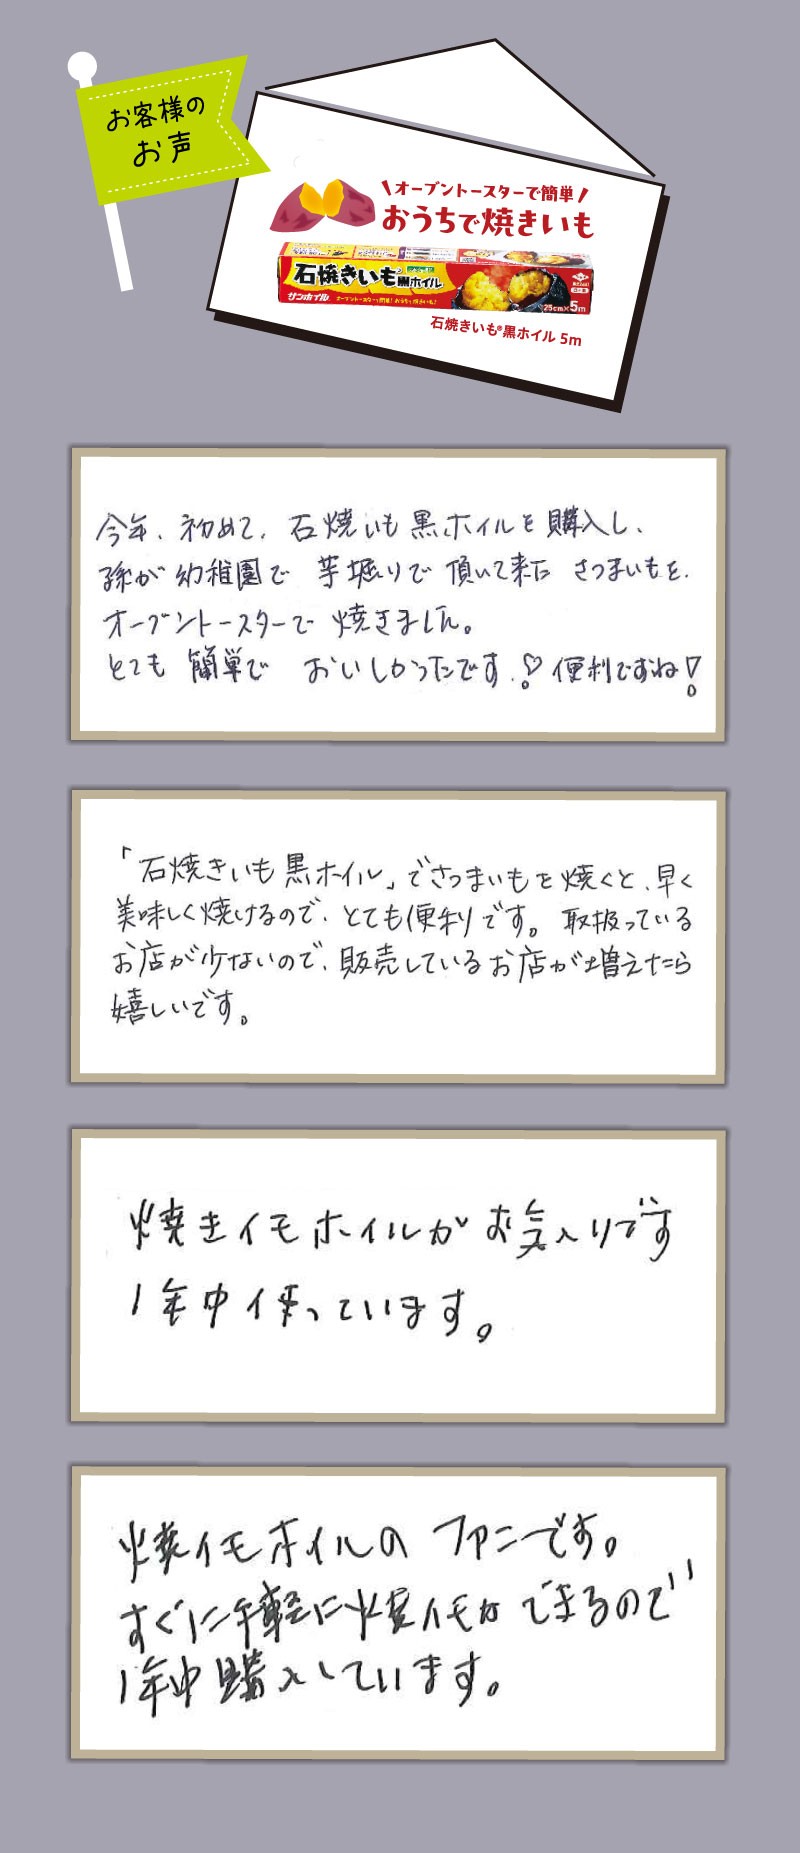 お客様の
お声
オーブントースターで簡単
おうちで焼きいも
石焼きいも黒ホイル
サンホイル
オーブントースターで簡単!おうちで焼きいも!
25cm×5m
石焼きいも®黒ホイル 5m
今年、初めて、石焼いも黒ホイルを購入し、
孫が幼稚園で 芋堀りで頂いて来た さつまいもを、
オーブントースターで 焼きました。
とても 簡単で おいしかったです。♡ 便利ですね!
「石焼きいも黒ホイル」でさつまいもを焼くと、早く
美味しく焼けるので、とても便利です。取扱っている
お店が少ないので、販売しているお店が増えたら
嬉しいです。
焼きイモホイルがお気入りです
1年中使っています。
焼イモホイルの ファンです。
すぐに手軽に焼イモができるので
1年中購入しています。